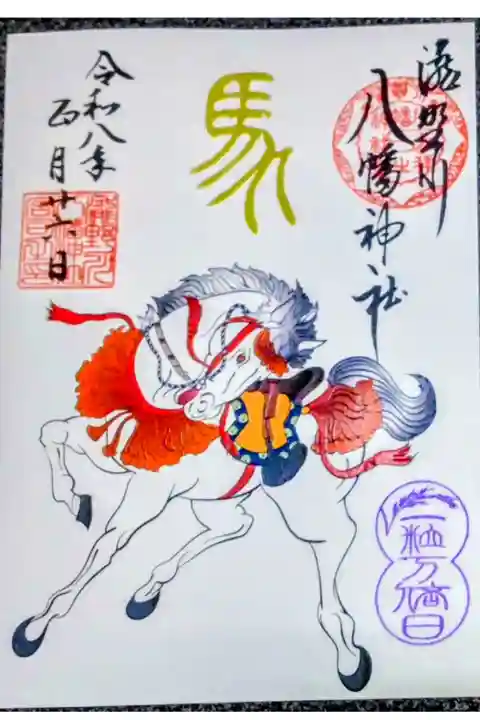 滝野川
八幡神社
馬
令和八年
正月廿六日
一粒万倍日